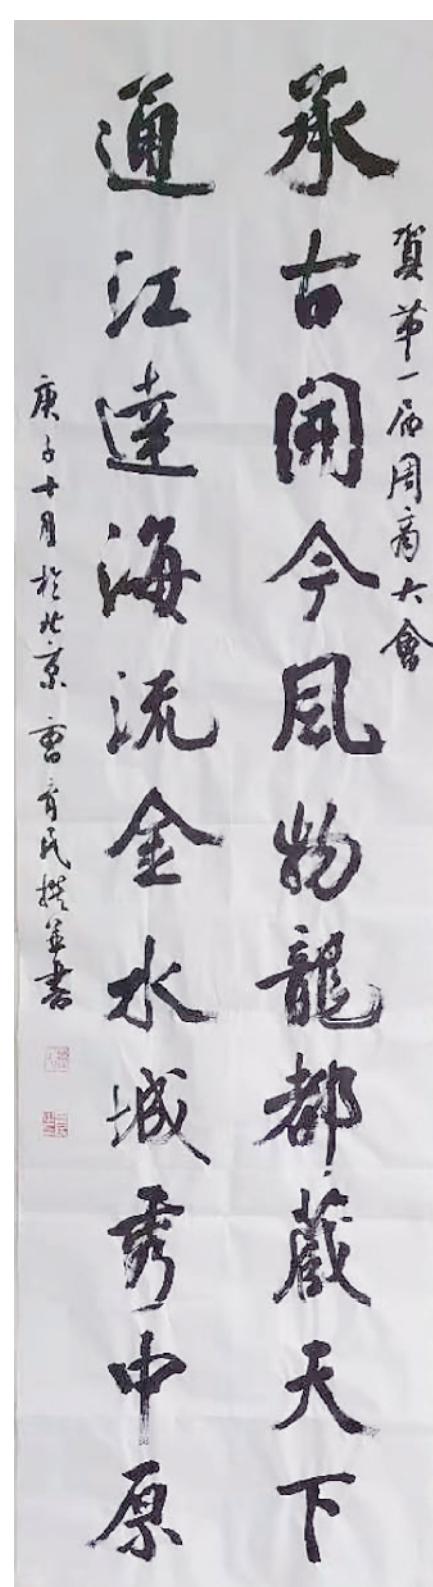 賀第一届周商大會
承古開今風物龍都藏天下
通江達海流金水城秀中原
庚子十月於北京曹育民撰并書